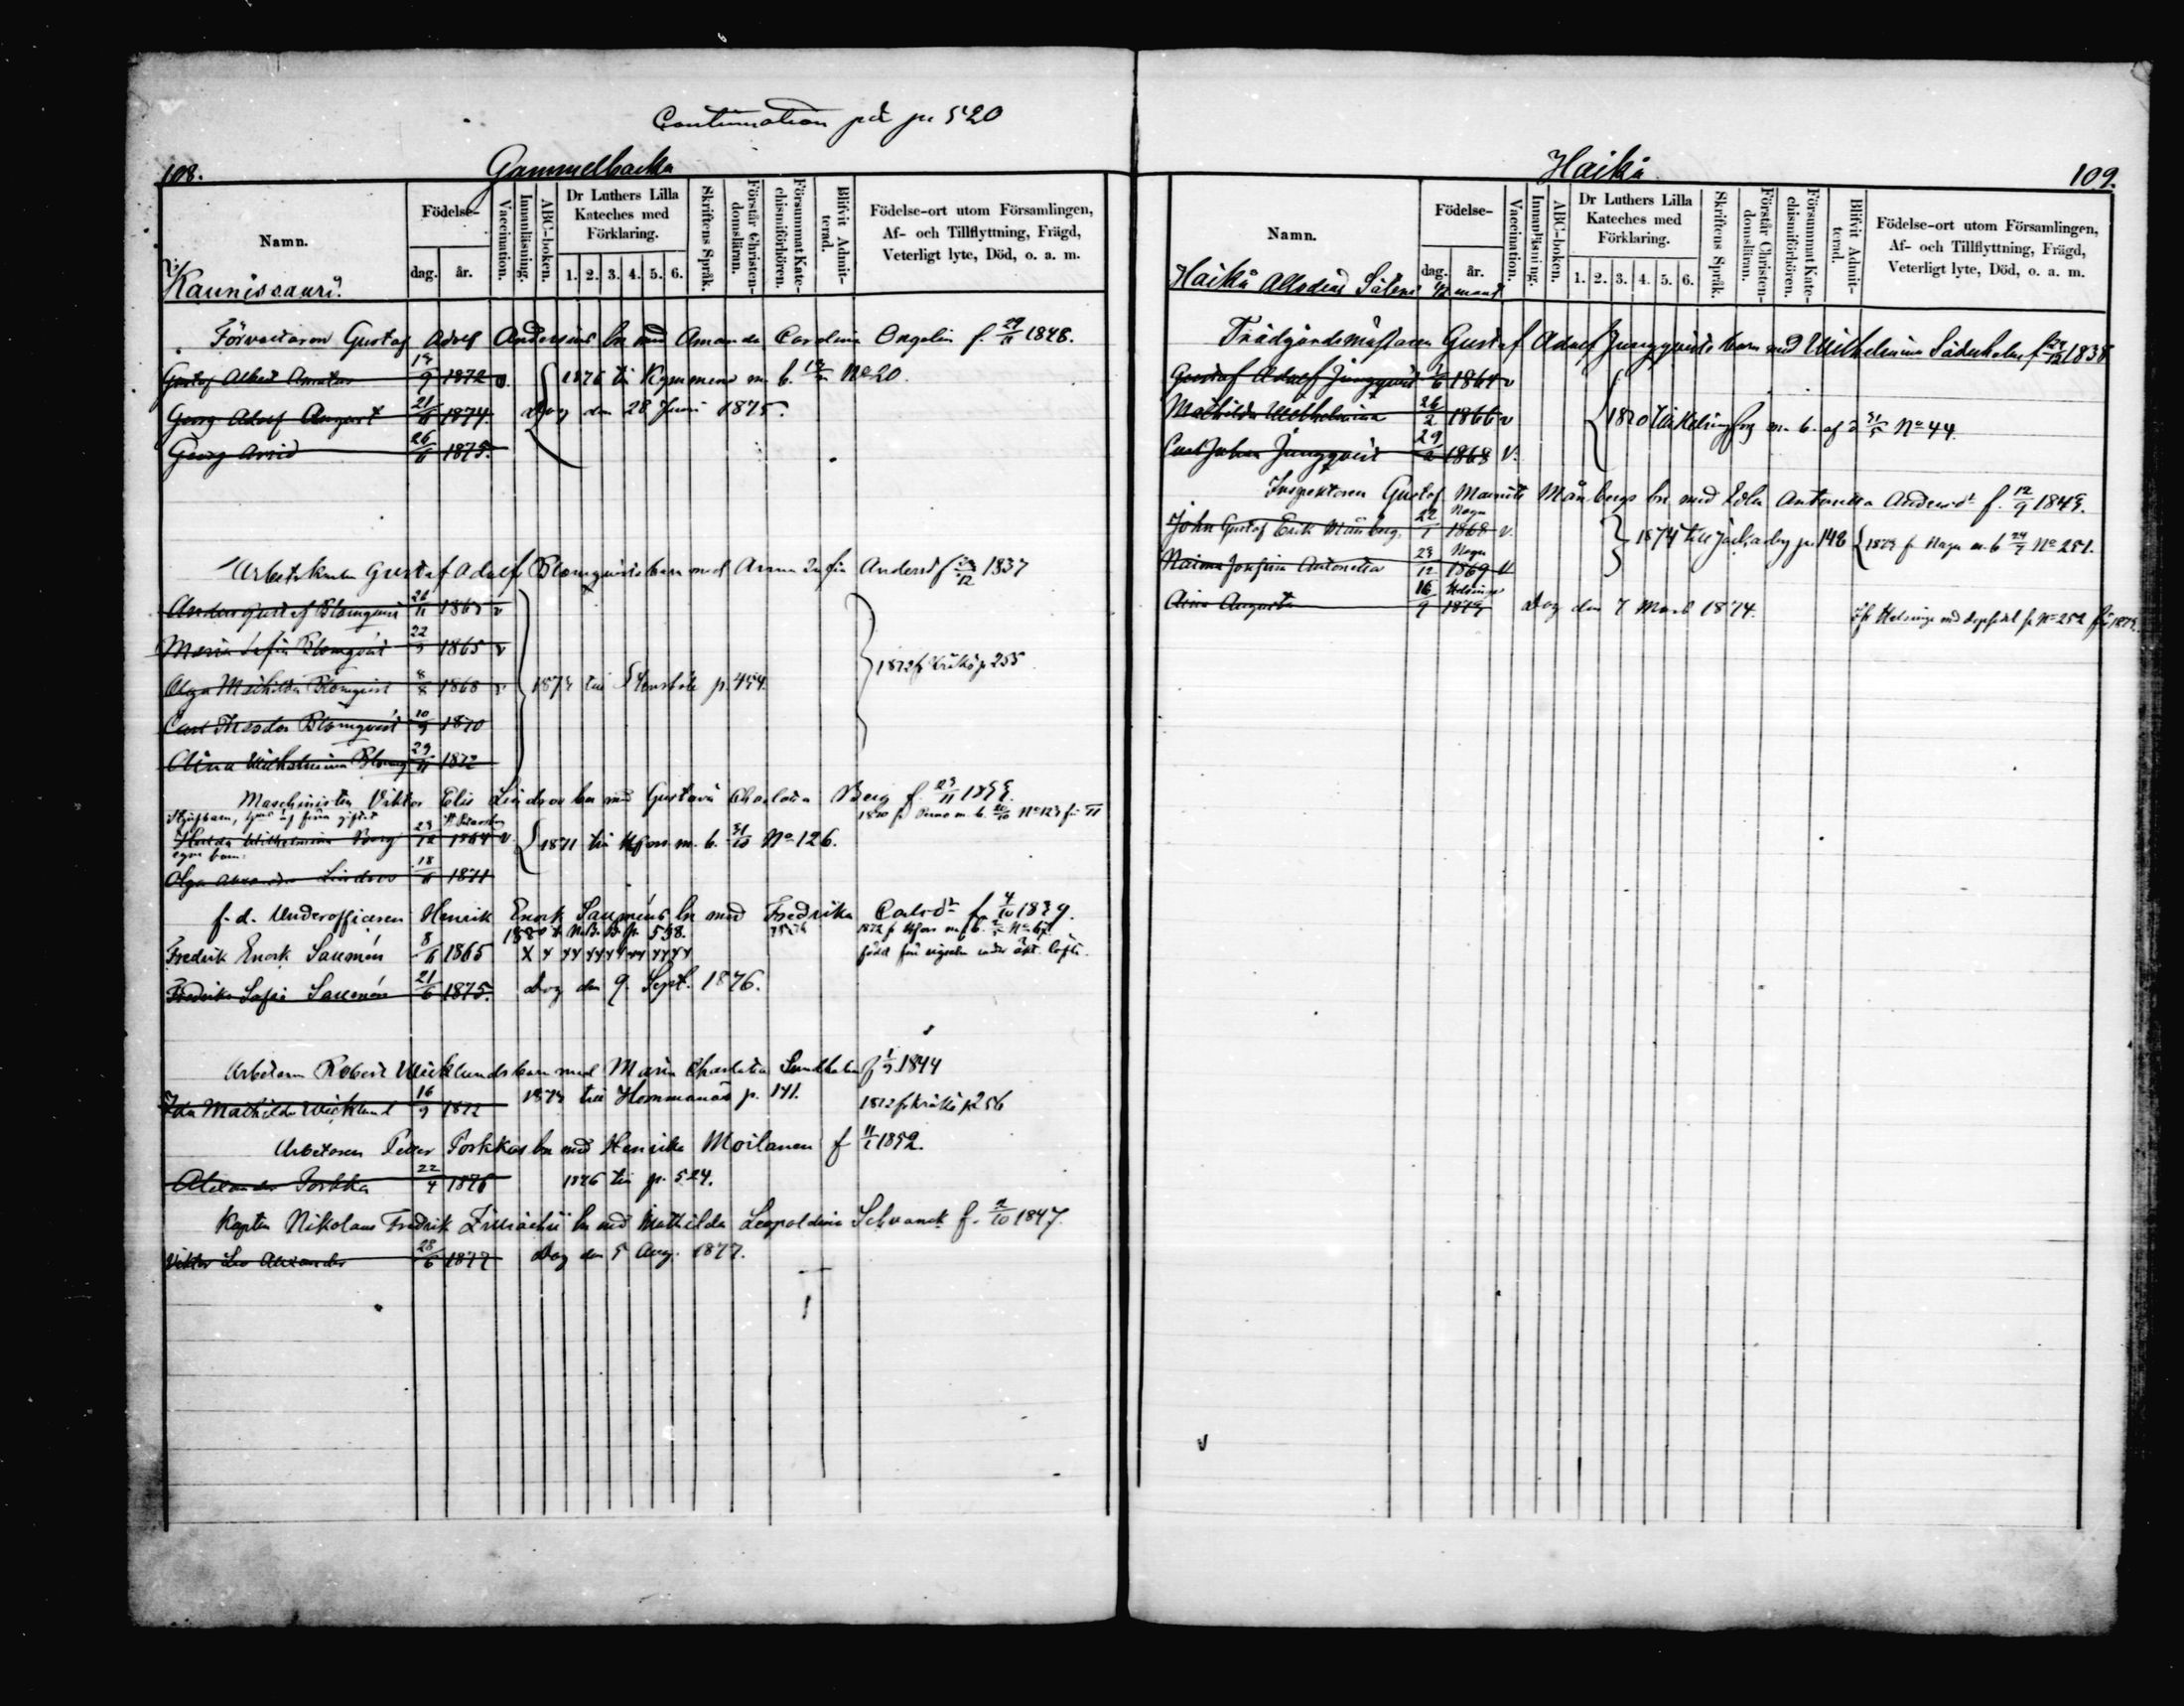 Continuation på p. 520
108.
Gammelbacka
Namn.
Födelse-
dag.
år.
Vaccination.
Innanläsning.
ABC-boken.
Dr Luthers Lilla
Kateches med
Förklaring.
1. 2. 3. 4. 5. 6.
Skriftens Språk.
Förstår Christen-
domsläran.
Försummat Kate-
chismiförhören.
Blifvit Admit-
terad.
Födelse-ort utom Församlingen,
Af- och Tillflyttning, Frägd,
Veterligt lyte, Död, o. a. m.
Kaunissaari.
Förvaltaren Gustaf Adolf Andersins bn med Amanda Carolina Engelin f. 1848.
Gustaf Albert 9 1872 v. 1876 till Kymmene m. b. No 20.
Georg Adolf August 21/ 1874 Dog den 28 Juni 1875.
Georg Arvid 26/6 1875.
Arbetskarlen Gustaf Adolf Blomqvists barn med Anna Sofia Andersd f 1837
Anders Gustaf Blomqvist 26/11 1863 v
Maria Sofia Blomqvist 22/ 1865 v
Olga Mathilda Blomqvist 8/8 1868 v 1873 till Stensböle p. 454. 1872 fr p 255
Carl Theodor Blomqvist 10/9 1870
Alina Wilhelmina Blomq 29/11 1872
Maschinisten Viktor Elis Lindroos bn med Gustava Charlotta Berg f.
Hulda Wilhelmina Berg 23/12 1864 v. 1871 till Hfors m. b. 31/10 No 126.
egna barn:
Olga Lindroos 18/6 1871
f. d. Underofficeren Henrik Enok Sauméns bn med Fredrika Carlsdr f. 4/10 1839.
1880 t. N. B. B. p. 598.
Fredrik Enok Saumén 8/6 1865 född före vigseln under äkt. löfte.
Fredrika Sofia Saumén 21/6 1875. Dog den 9. Sept. 1876.
Arbetaren Robert Wicklunds barn med Maria Charlotta Sundholm f 1844
Ida Mathilda Wicklund 16/9 1872 1873 till Hommanäs p. 141. 1872 fr p 256
Arbetaren Petter Porkkas bn med Henrika Moilanen f 1852.
Alexander Porkka 22/4 1876 1876 till p. 524.
Kapten Nikolaus Fredrik Zilliacus bn med Mathilda Leopoldina Schvanck f. 2/10 1847.
Viktor Leo Alexander 28/6 1877 Dog den 5 Aug. 1877.
Haikå
109.
Namn.
Födelse-
dag.
år.
Vaccination.
Innanläsning.
ABC-boken.
Dr Luthers Lilla
Kateches med
Förklaring.
1. 2. 3. 4. 5. 6.
Skriftens Språk.
Förstår Christen-
domsläran.
Försummat Kate-
chismiförhören.
Blifvit Admit-
terad.
Födelse-ort utom Församlingen,
Af- och Tillflyttning, Frägd,
Veterligt lyte, Död, o. a. m.
Haikå Allodial Säteri mant
Trädgårdsmästaren Gustaf Adolf Jungqvists barn med Wilhelmina Söderholm f 1838
Gustaf Adolf Jungqvist 1/6 1864 v
Mathilda Wilhelmina 26/2 1866 v 1870 till Helsingfors m. b. af d. No 44.
Carl Johan Jungqvist 29/2 1868 v.
Inspektoren Gustaf Maurits Månbergs bn med Edla Antonetta Andersdr f. 12/9 1843.
John Gustaf Erik Månberg. 22/1 Nagu 1868 v. 1874 till Jackarby p. 148 1873 fr Nagu m. b 24/7 No 251.
Naima Josefina Antonetta 23/12 Nagu 1869 v
Aina Augusta 16/9 Helsinge 1873 Dog den 7 Mars 1874. Ifr Helsinge med dopsedel No 252 för 1873.